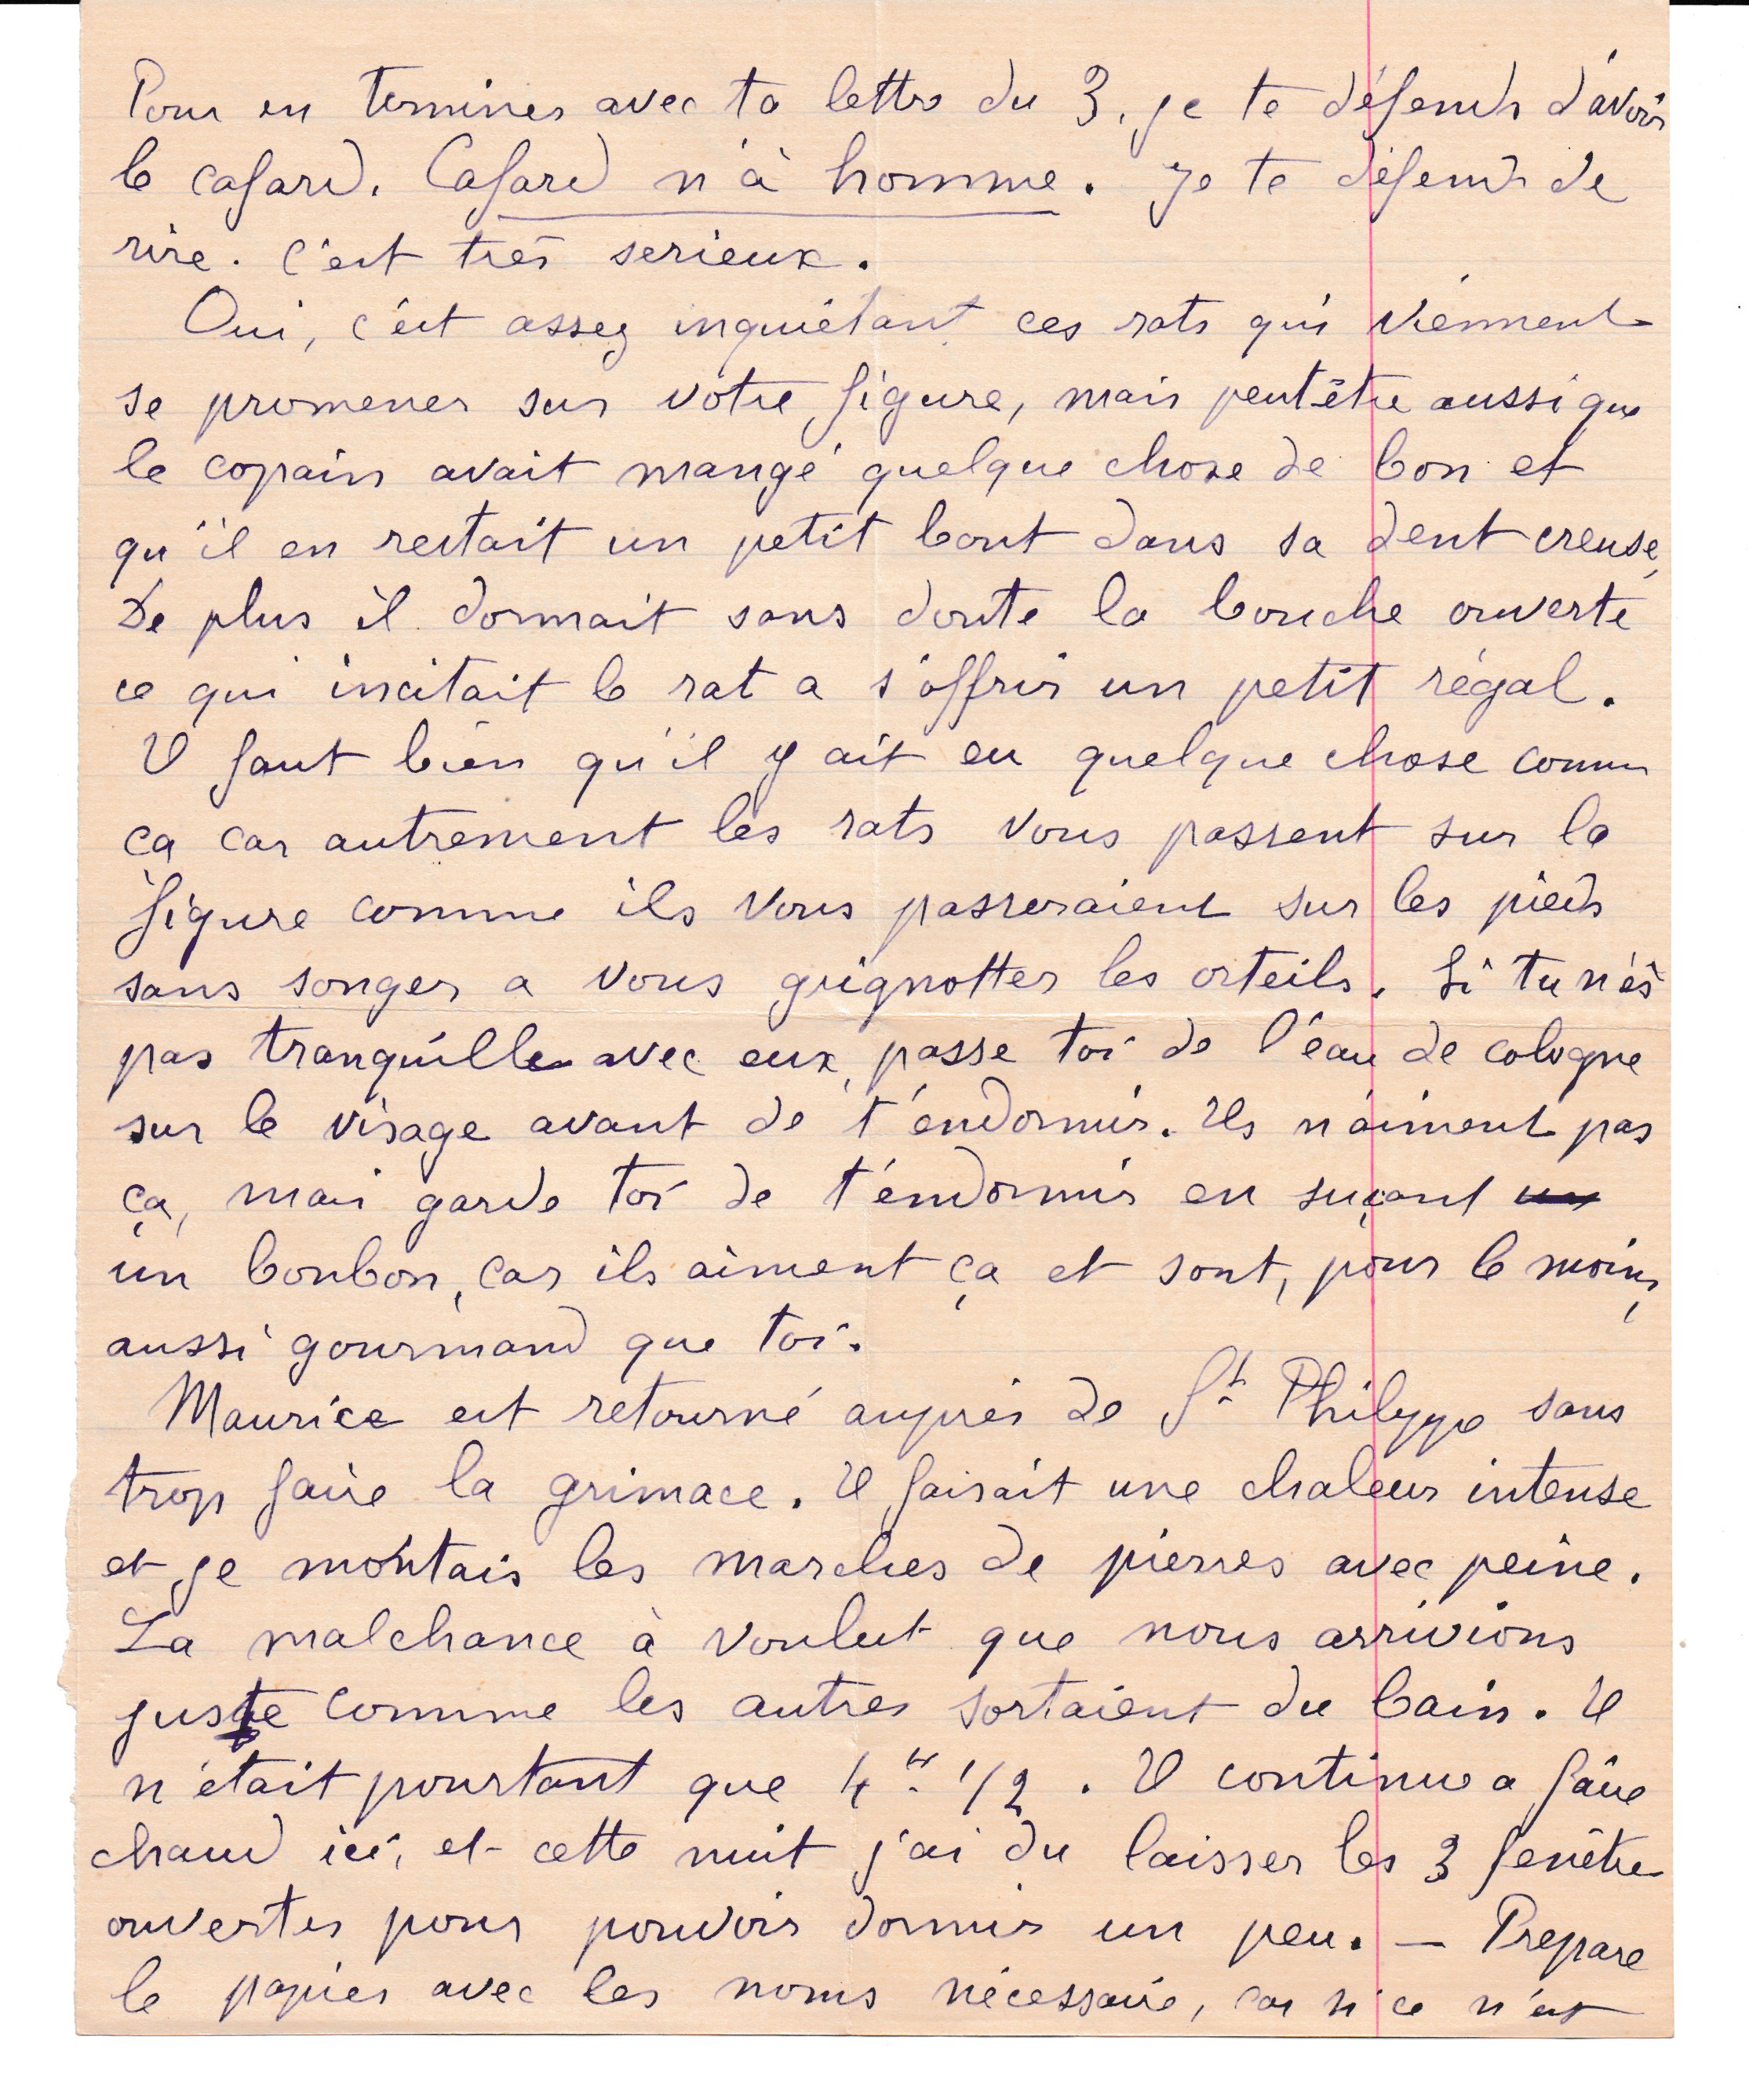 Pour en terminer avec ta lettre du 3, je te défends d'avoir
le cafard. Cafard n'à homme. Je te défends de
rire. C'est très serieux.
Oui, c'est assez inquiétant ces rats qui viennent
se promener sur votre figure, mais peut-être aussi que
le copain avait mangé quelque chose de bon et
qu'il en restait un petit bout dans sa dent creuse,
De plus il dormait sans doute la bouche ouverte
ce qui incitait le rat a s'offrir un petit régal.
Il faut bien qu'il y ait eu quelque chose comme
ça car autrement les rats vous passent sur la
figure comme ils vous passeraient sur les pieds
sans songer a vous grignotter les orteils. Si tu n'es
pas tranquille avec eux, passe toi de l'eau de cologne
sur le visage avant de t'endormir. Ils n'aiment pas
ça, mais garde toi de t'endormir en suçant un
un bonbon, car ils aiment ça et sont, pour le moins,
aussi gourmand que toi.
Maurice est retourné auprès de St Philippe sans
trop faire la grimace. Il faisait une chaleur intense
et je montais les marches de pierres avec peine.
La malchance à voulut que nous arrivions
juste comme les autres sortaient du bain. Il
n'était pourtant que 4 H 1/2. Il continue a faire
chaud ici, et cette nuit j'ai du laisser les 3 fenêtre
ouvertes pour pouvoir dormir un peu. — Prepare
le papier avec les noms nécessaire, car si ce n'est